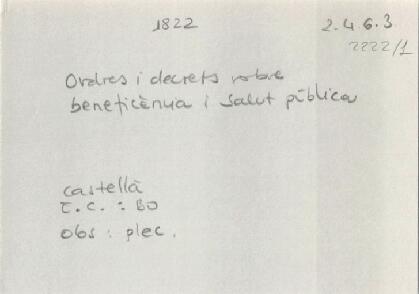 1822
2.4.6.3
2222/1
Ordres i decrets sobre
beneficència i salut pública
castellà
E.C.: BO
obs: plec.